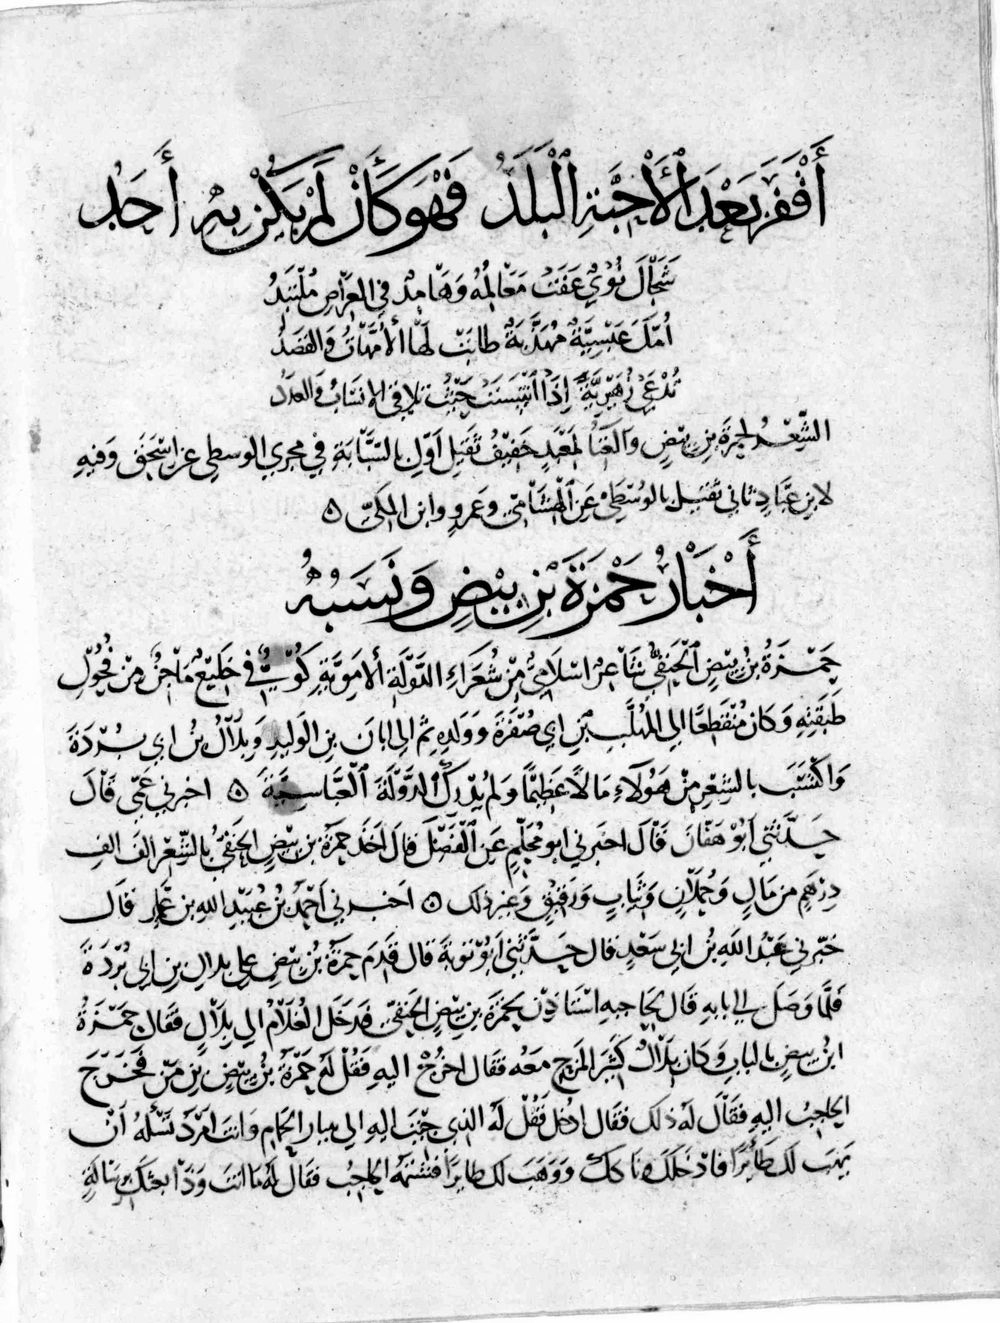 أَقْفَرَ بَعْدَ الْأَحِبَّةِ الْبَلَدُ فَهْوَ كَأَنْ لَمْ يَكُنْ بِهِ أَحَدُ
شَجَاكَ نُؤْيٌ عَفَتْ مَعَالِمُهُ وَهَامِدٌ فِي الْعِرَاصِ مُلْتَبَدُ
أُمُّكَ عَبْسِيَّةٌ مُهَذَّبَةٌ طَابَتْ لَهَا الْأُمَّهَاتُ وَالْقَصَدُ
تُدْعَى زُهَيْرِيَّةً إِذَا انْتَسَبَتْ حَيْثُ تَلَاقَى الْأَنْسَابُ وَالْعَدَدُ
الشِّعْرُ لحمزة بن بيض والغناء لمعبد خفيف ثقيل أول بالسبابة في مجرى الوسطى عن إسحق وفيه
لابن عباد ثاني ثقيل بالوسطى عن الهشامي وعمرو وابن المكي ۵
أَخْبَارُ حَمْزَةَ بْنِ بِيْضٍ وَنَسَبُهُ
حمزة بن بيض الحنفي شاعر اسلامي من شعراء الدولة الاموية كوفي خليع ماجن من فحول
طبقته وكان منقطعا الى المهلب بن ابي صفرة وولده ثم الى ابان بن الوليد وبلال بن ابي بردة
واكتسب بالشعر من هولاء مالا عظيما ولم يدرك الدولة العباسية ۵ اخبرني عمي قال
حدثني ابو هفان قال اخبرني ابو محلم عن المفضل قال اخذ حمزة بن بيض الحنفي بالشعر الف الف
درهم من مال وحملان وثياب ورقيق وغير ذلك ۵ اخبرني احمد بن عبيد الله بن عمار قال
خبرني عبد الله بن ابي سعد قال حدثني ابو توبة قال قدم حمزة بن بيض على بلال بن ابي بردة
فلما وصل الى بابه قال لحاجبه استاذن لحمزة بن بيض الحنفي فدخل الغلام الى بلال فقال حمزة
ابن بيض بالباب وكان بلال كثير المزح معه فقال اخرج اليه فقل له حمزة بن بيض بن من فخرج
الحاجب اليه فقال له ذلك فقال ادخل فقل له الذي جئت اليه الى بيار الحمام وانت امرد تسأله أن
يهب لك طائرا فادخلك وناكك ووهب لك طائرا فشتمه الحاجب فقال له ما انت وذا بعثك برسالة